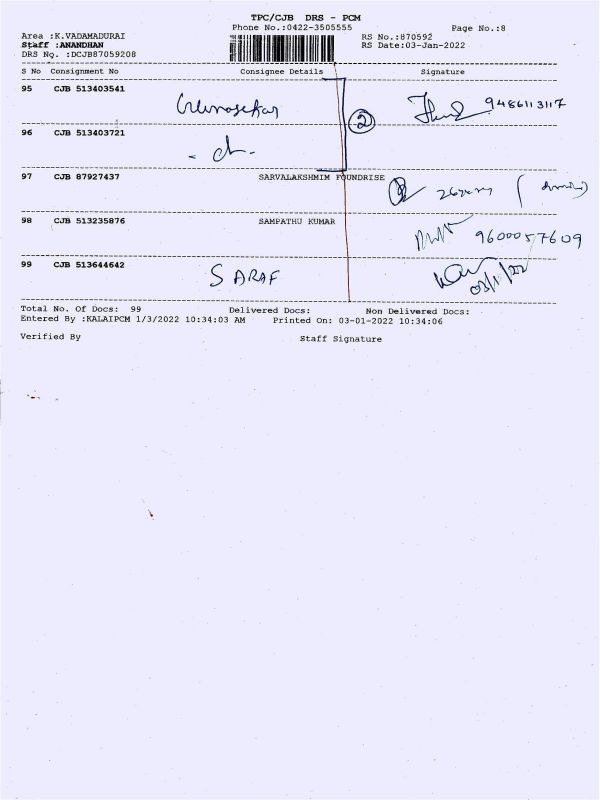 TPC/CJB DRS - PCM
Phone No.:0422-3505555 Page No.:8
Area :K.VADAMADURAI RS No.:870592
Staff :ANANDHAN RS Date:03-Jan-2022
DRS No. :DCJB87059208
S No Consignment No Consignee Details Signature
95 CJB 513403541 9486113117
2
96 CJB 513403721
97 CJB 87927437 SARVALAKSHMIM FOUNDRISE
98 CJB 513235876 SAMPATHU KUMAR 9600057609
99 CJB 513644642 SARAF 03/1/22
Total No. Of Docs: 99 Delivered Docs: Non Delivered Docs:
Entered By :KALAIPCM 1/3/2022 10:34:03 AM Printed On: 03-01-2022 10:34:06
Verified By Staff Signature